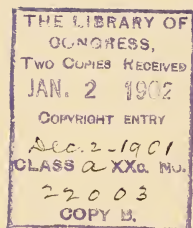 THE LIBRARY OF
CONGRESS,
TWO COPIES RECEIVED
JAN. 2 1902
COPYRIGHT ENTRY
Dec. 2-1901
CLASS a XXc. No.
22003
COPY B.